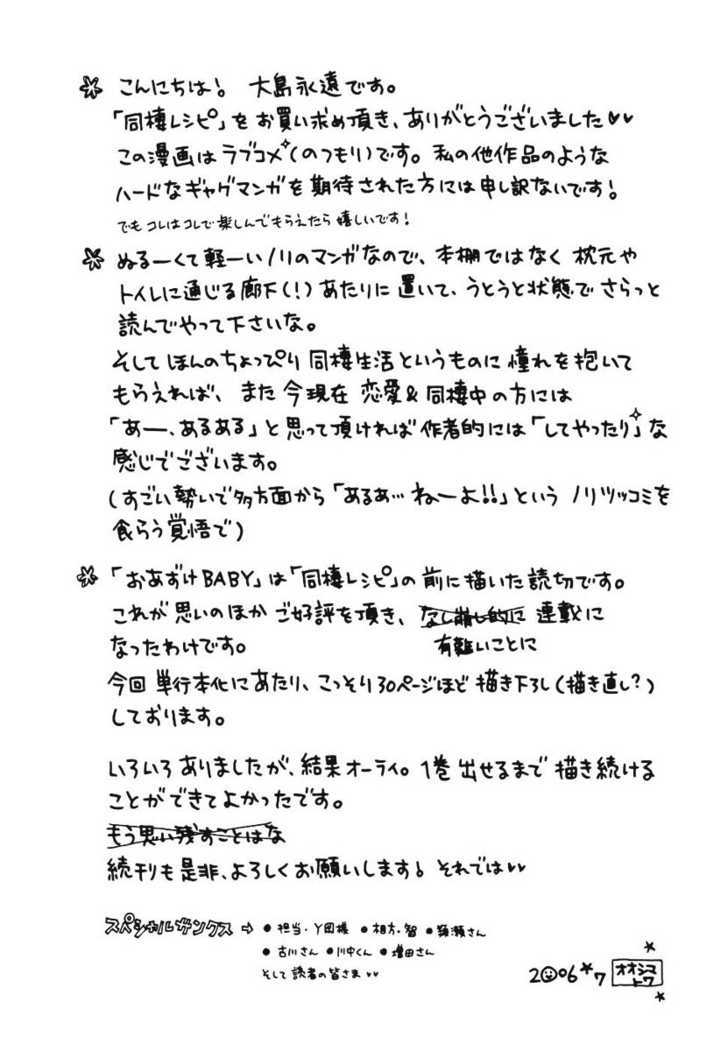 ☆ こんにちは! 大島永遠です。
「同棲レシピ」をお買い求め頂き、ありがとうございました♥♥
この漫画はラブコメ(のつもり)です。私の他作品のような
ハードなギャグマンガを期待された方には申し訳ないです!
でもコレはコレで楽しんでもらえたら嬉しいです!
☆ ぬるーくて軽ーいノリのマンガなので、本棚ではなく枕元や
トイレに通じる廊下(!)あたりに置いて、うとうと状態でさらっと
読んでやって下さいな。
そしてほんのちょっぴり同棲生活というものに憧れを抱いて
もらえれば、また今現在 恋愛&同棲中の方には
「あー、あるある」と思って頂ければ作者的には「してやったり」な
感じでございます。
(すごい勢いで多方面から「あるあ…ねーよ!!」というノリツッコミを
食らう覚悟で)
☆ 「おあずけBABY」は「同棲レシピ」の前に描いた読切です。
これが思いのほかご好評を頂き、なし崩し的に 連載に
なったわけです。 有難いことに
今回単行本化にあたり、こっそり30ページほど描き下ろし(描き直し?)
しております。
いろいろありましたが、結果オーライ。1巻出せるまで描き続ける
ことができてよかったです。
もう思い残すことはな
続刊も是非、よろしくお願いします! それでは♥♥
スペシャルサンクス ⇨ ●担当・Y田様 ●相方・智 ●瀬さん
●古川さん ●川中くん ●増田さん
そして読者の皆さま ♥♥
2006★7 オオシマトワ